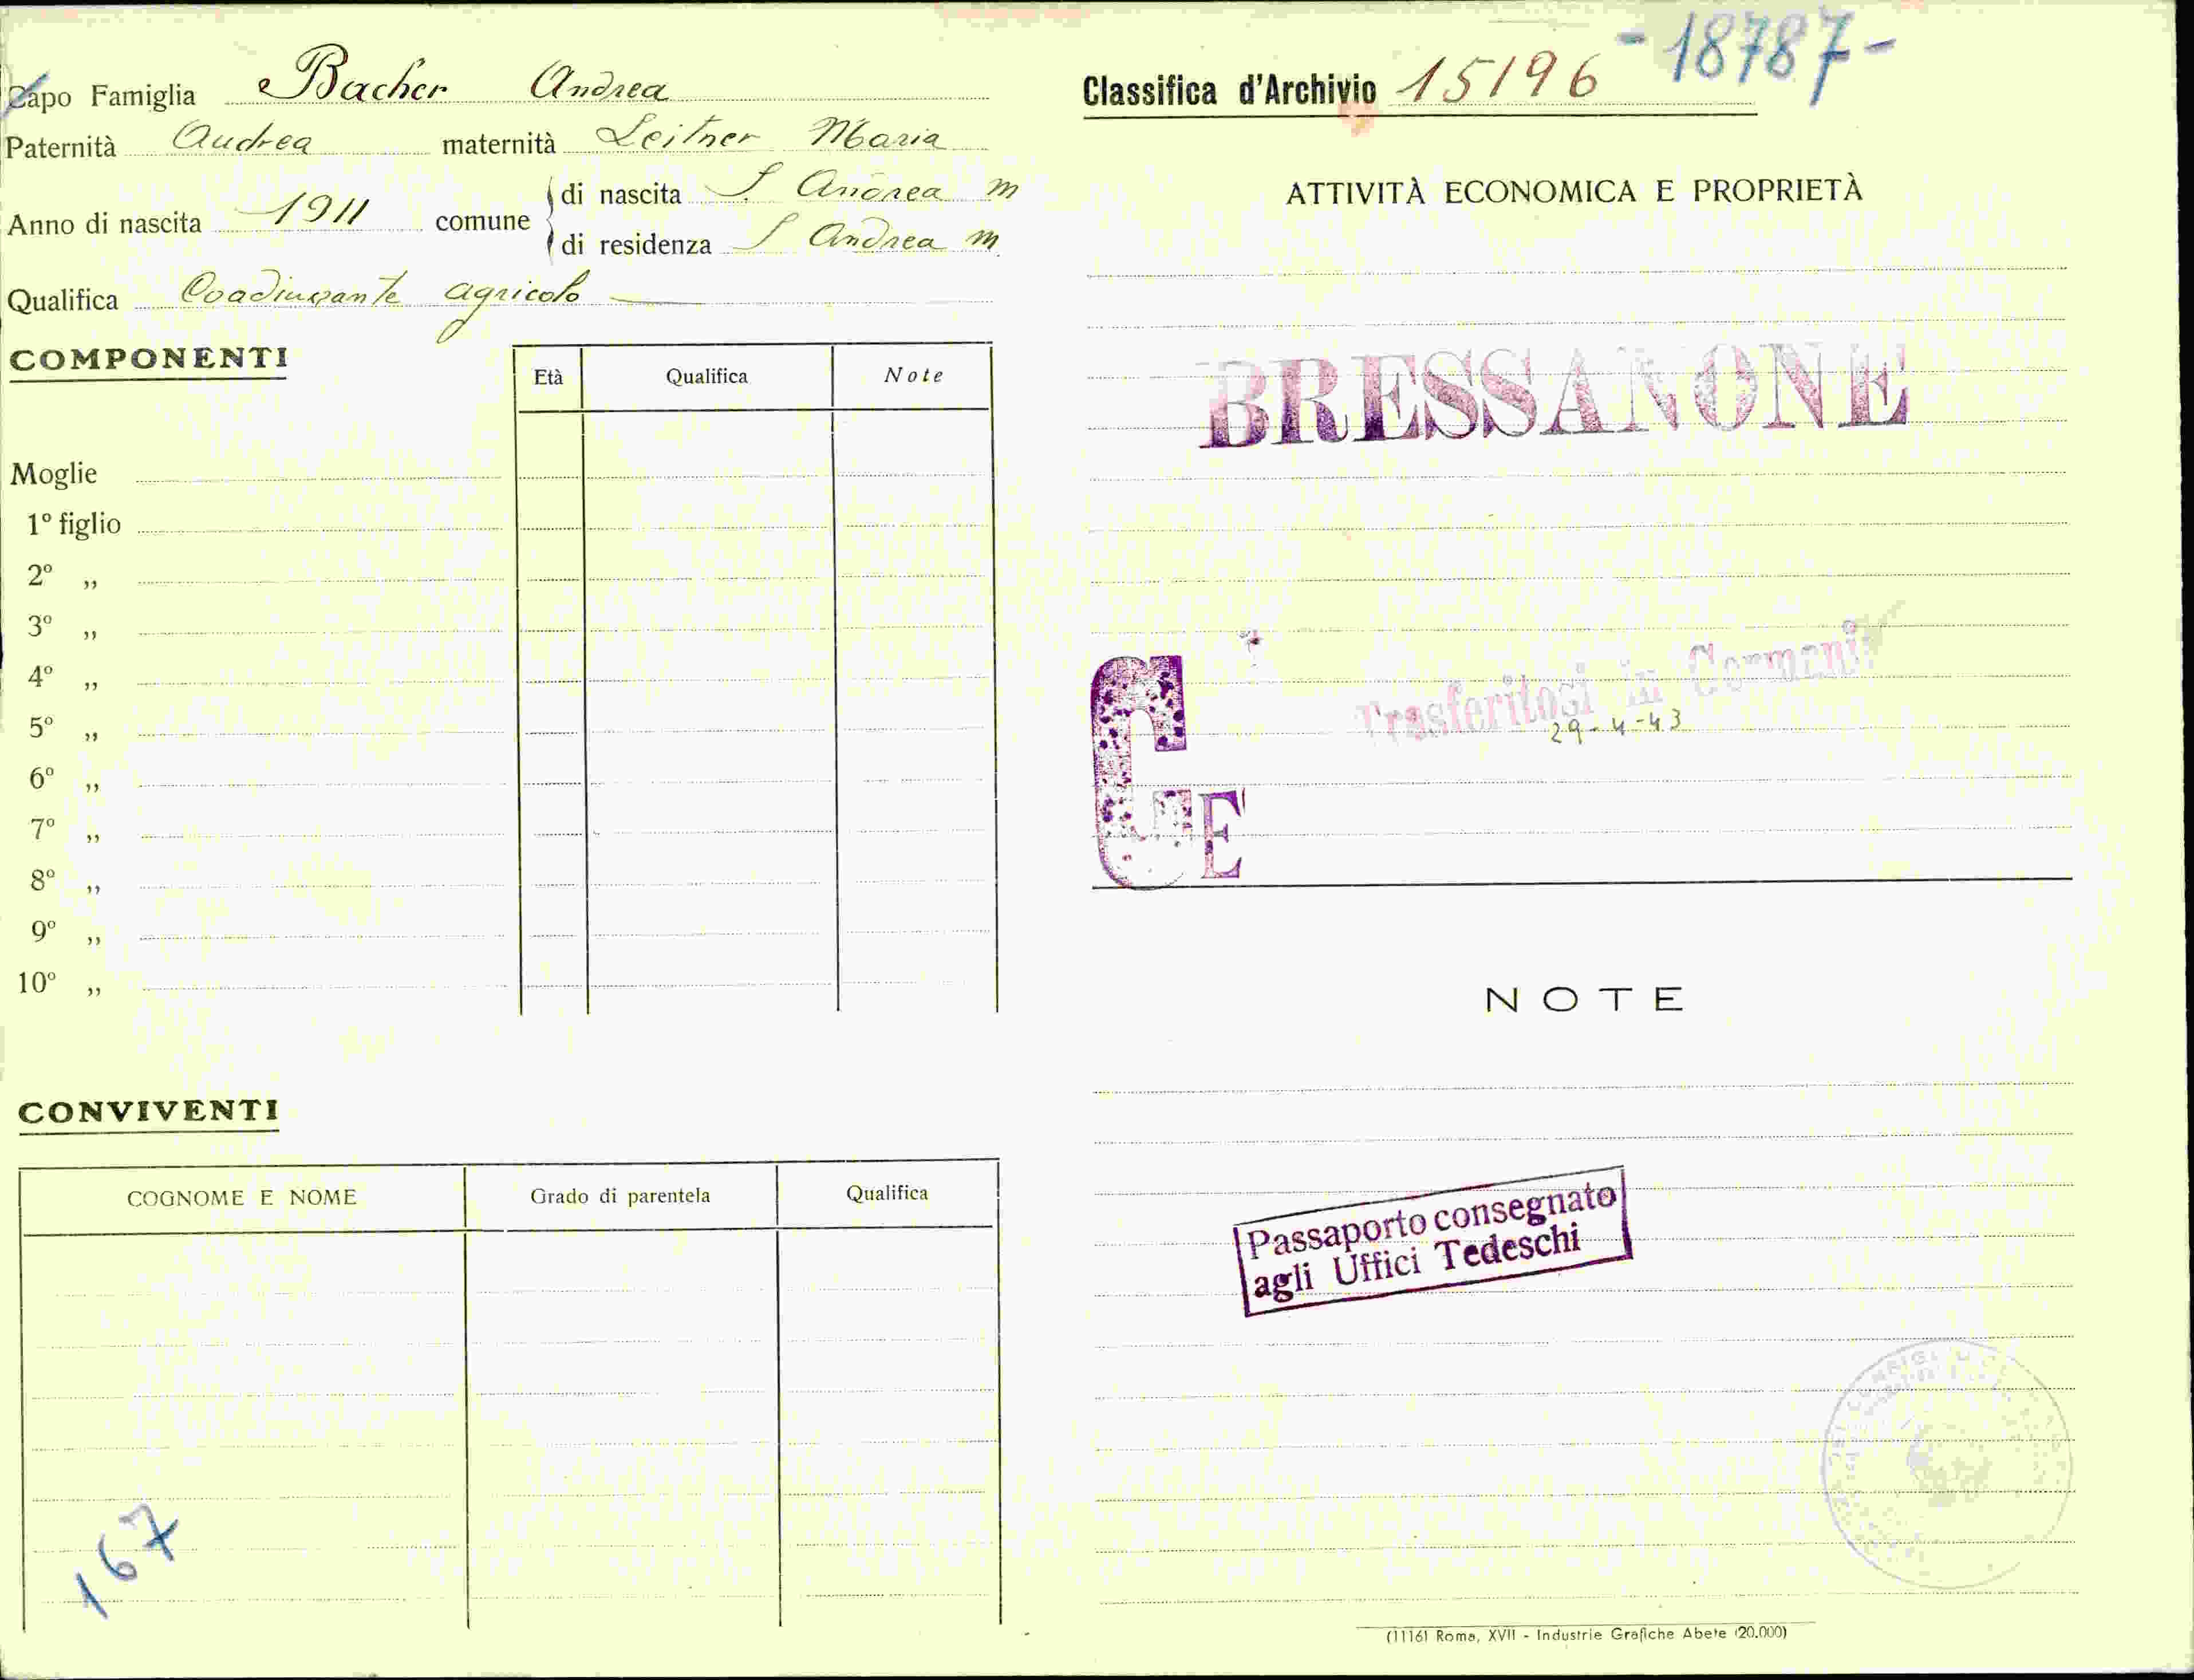 Capo Famiglia Bacher Andrea
Paternità Andrea maternità Leitner Maria
Anno di nascita 1911 comune di nascita S. Andrea m
di residenza S Andrea m
Qualifica Coadiuvante agricolo
COMPONENTI
Età Qualifica Note
Moglie
1º figlio
2º „
3º „
4º „
5º „
6º „
7º „
8º „
9º „
10º „
CONVIVENTI
COGNOME E NOME Grado di parentela Qualifica
167
Classifica d'Archivio 15196 -18787-
ATTIVITÀ ECONOMICA E PROPRIETÀ
BRESSANONE
Trasferitosi in Germani
29-4-43
C E
NOTE
Passaporto consegnato
agli Uffici Tedeschi
(1116) Roma, XVII - Industrie Grafiche Abete (20.000)